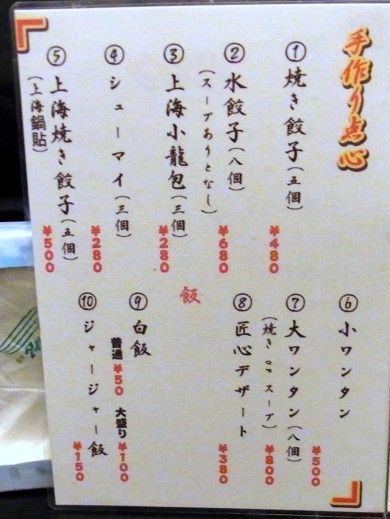 手作り点心
①焼き餃子(五個)
¥480
②水餃子(八個)
(スープありとなし)
¥680
③上海小龍包(三個)
¥280
④シューマイ(三個)
¥280
⑤上海焼き餃子(五個)
(上海鍋貼)
¥500
⑥小ワンタン
¥500
⑦大ワンタン(八個)
(焼き or スープ)
¥800
⑧匠心デザート
¥380
飯
⑨白飯
普通¥50 大盛り¥100
⑩ジャージャー飯
¥150